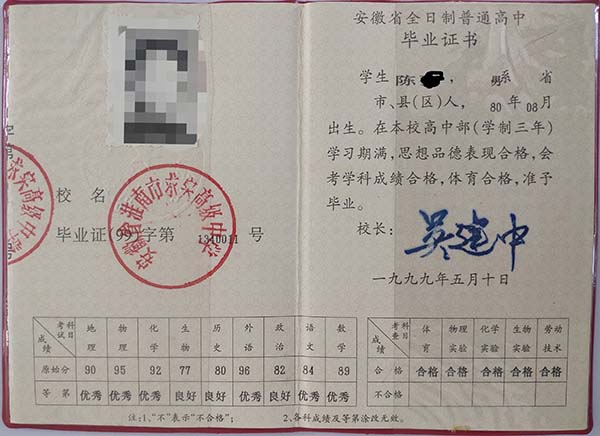 安徽省全日制普通高中
毕业证书
学生 陈 ，男系 省
市、县(区)人，80年08月
出生。在本校高中部(学制三年)
学习期满，思想品德表现合格，会
考学科成绩合格，体育合格，准予
毕业。
校长：吴建中
一九九九年五月十日
校名
安徽省淮南市蔡家高级中学
毕业证(99)字第 1340011 号
考试科目 成绩 地理 物理 化学 生物 历史 外语 政治 语文 数学
原始分 90 95 92 77 80 96 82 84 89
等第 优秀 优秀 优秀 良好 良好 优秀 良好 优秀 优秀
考查科目 成绩 体育 物理实验 化学实验 生物实验 劳动技术
合格 合格 合格 合格 合格 合格
不合格
注：1、“不”表示“不合格”； 2、各科成绩及等第涂改无效。